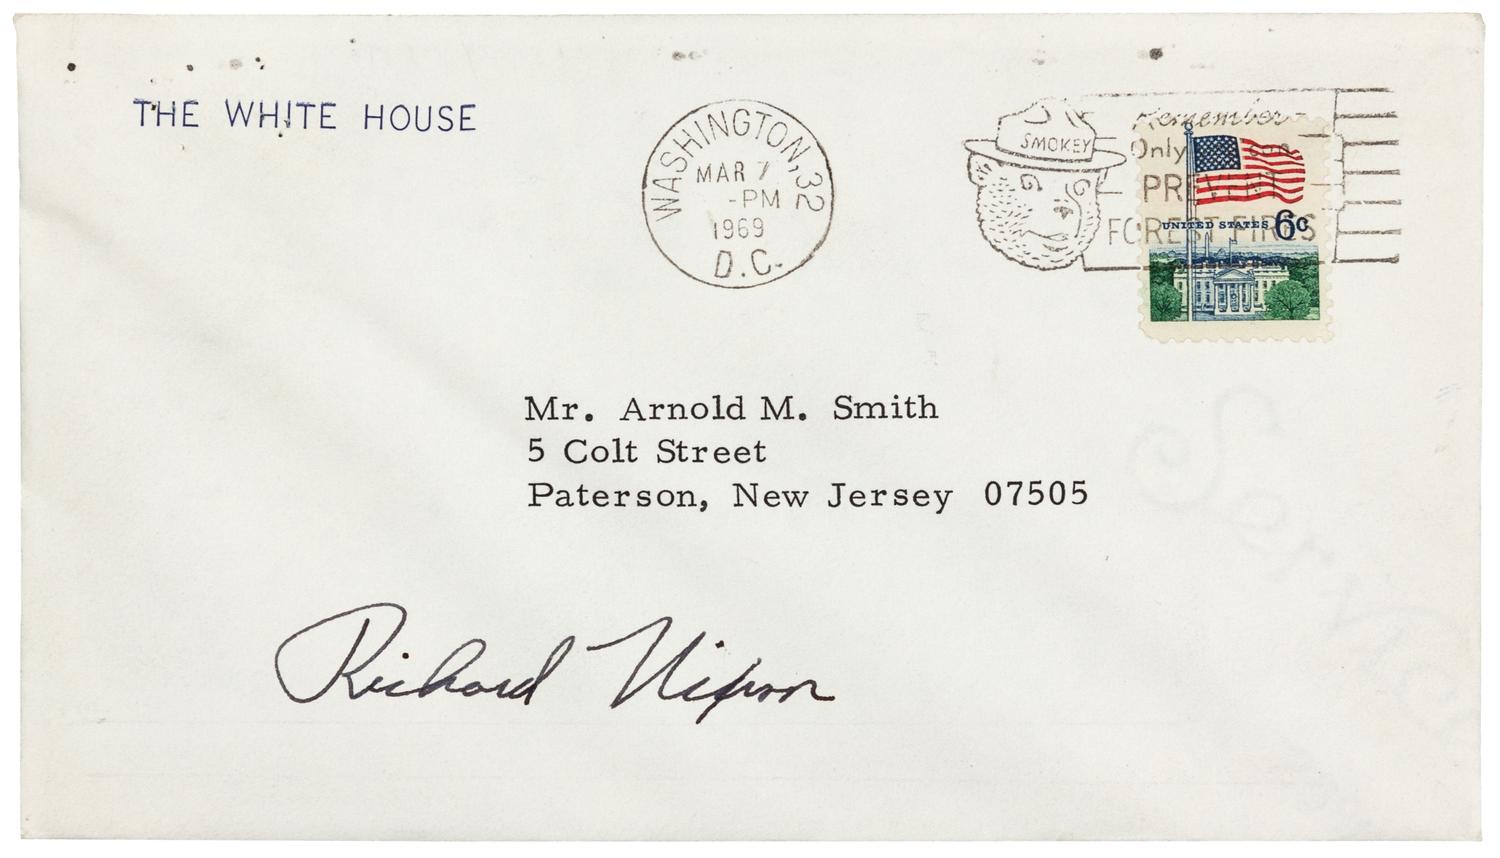 THE WHITE HOUSE
WASHINGTON, 32
MAR 7
-PM
1969
D.C.
SMOKEY
Remember-
Only you can
PREVENT
FOREST FIRES
UNITED STATES 6c
Mr. Arnold M. Smith
5 Colt Street
Paterson, New Jersey 07505
Richard Nixon